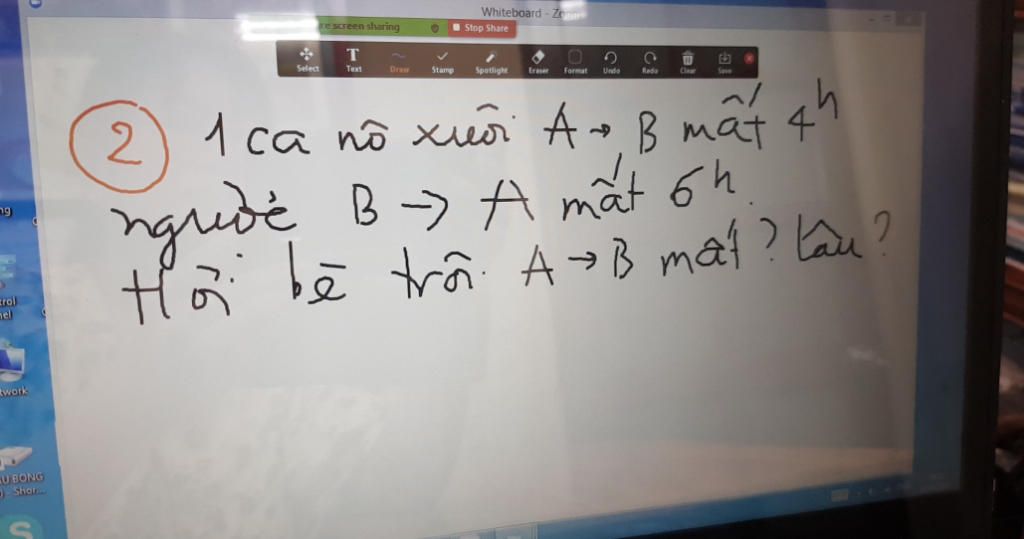 Whiteboard - Zoom
re screen sharing Stop Share
Select Text Draw Stamp Spotlight Eraser Format Undo Redo Clear Save
2 1 ca nô xuôi A → B mất 4h
ngược B → A mất 6h.
Hỏi bè trôi A → B mất ? lâu?
ng
trol
nel
twork
U BONG
) - Shor...
S